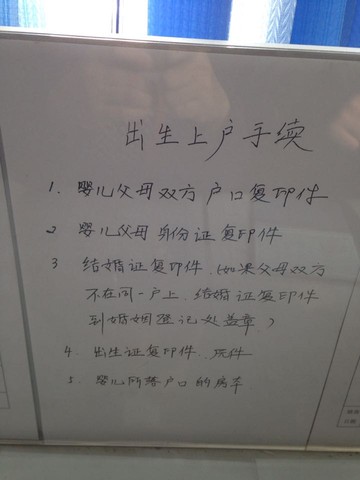 出生上户手续
1. 婴儿父母双方户口复印件
2 婴儿父母身份证复印件
3 结婚证复印件.(如果父母双方
不在同一户上、结婚证复印件
到婚姻登记处盖章)
4. 出生证复印件、原件
5. 婴儿所落户口的房本